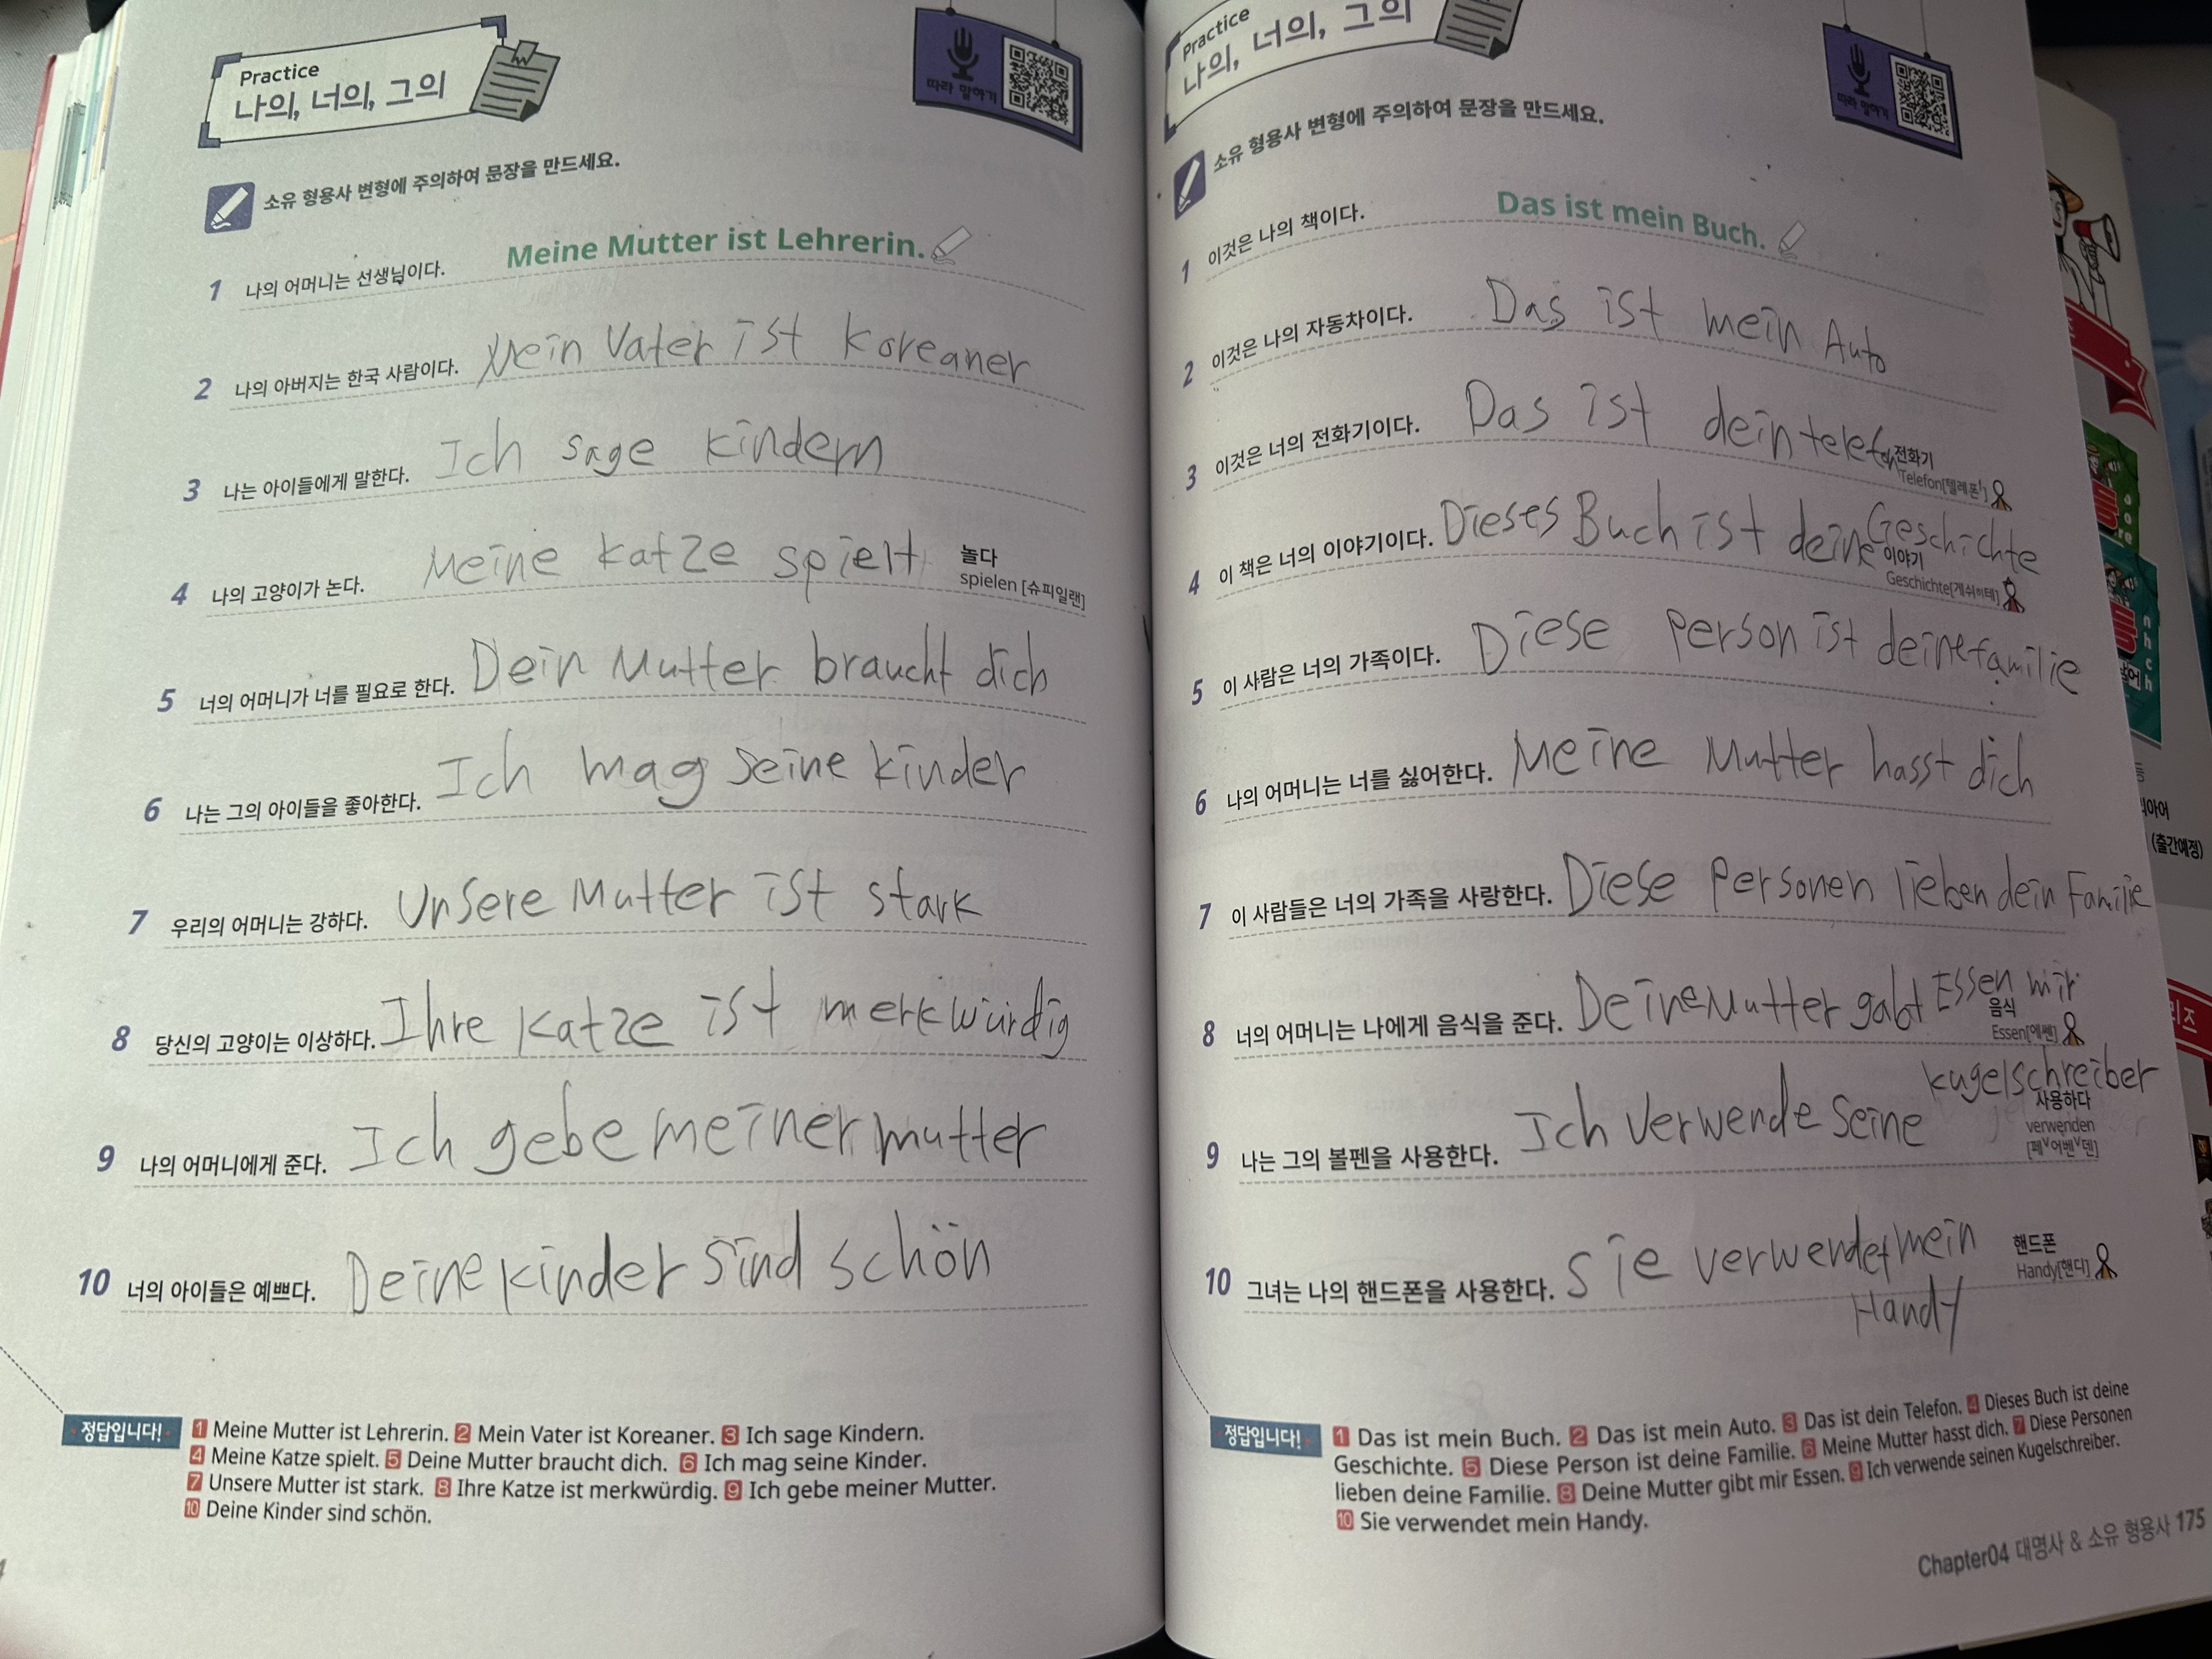 Practice
나의, 너의, 그의
따라 말하기
소유 형용사 변형에 주의하여 문장을 만드세요.
1 나의 어머니는 선생님이다. Meine Mutter ist Lehrerin.
2 나의 아버지는 한국 사람이다. Mein Vater ist Koreaner
3 나는 아이들에게 말한다. Ich sage kindern
4 나의 고양이가 논다. Meine katze spielt 놀다
spielen [슈피일랜]
5 너의 어머니가 너를 필요로 한다. Dein Mutter braucht dich
6 나는 그의 아이들을 좋아한다. Ich mag seine kinder
7 우리의 어머니는 강하다. Unsere Mutter ist stark
8 당신의 고양이는 이상하다. Ihre katze ist merkwürdig
9 나의 어머니에게 준다. Ich gebe meiner mutter
10 너의 아이들은 예쁘다. Deine kinder sind schön
정답입니다! 1 Meine Mutter ist Lehrerin. 2 Mein Vater ist Koreaner. 3 Ich sage Kindern.
4 Meine Katze spielt. 5 Deine Mutter braucht dich. 6 Ich mag seine Kinder.
7 Unsere Mutter ist stark. 8 Ihre Katze ist merkwürdig. 9 Ich gebe meiner Mutter.
10 Deine Kinder sind schön.
Practice
나의, 너의, 그의
따라 말하기
소유 형용사 변형에 주의하여 문장을 만드세요.
1 이것은 나의 책이다. Das ist mein Buch.
2 이것은 나의 자동차이다. Das ist mein Auto
3 이것은 너의 전화기이다. Das ist dein telefon 전화기
Telefon[텔레폰]
4 이 책은 너의 이야기이다. Dieses Buch ist deine Geschichte
이야기
Geschichte[게쉬히테]
5 이 사람은 너의 가족이다. Diese person ist deine familie
6 나의 어머니는 너를 싫어한다. Meine Mutter hasst dich
7 이 사람들은 너의 가족을 사랑한다. Diese Personen lieben dein Familie
8 너의 어머니는 나에게 음식을 준다. Deine Mutter gabt Essen mir
음식
Essen[에쎈]
9 나는 그의 볼펜을 사용한다. Ich verwende seine kugelschreiber
사용하다
verwenden
[페V어벤V덴]
10 그녀는 나의 핸드폰을 사용한다. Sie verwendet mein
Handy
핸드폰
Handy[핸디]
정답입니다! 1 Das ist mein Buch. 2 Das ist mein Auto. 3 Das ist dein Telefon. 4 Dieses Buch ist deine
Geschichte. 5 Diese Person ist deine Familie. 6 Meine Mutter hasst dich. 7 Diese Personen
lieben deine Familie. 8 Deine Mutter gibt mir Essen. 9 Ich verwende seinen Kugelschreiber.
10 Sie verwendet mein Handy.
Chapter04 대명사 & 소유 형용사 175
(출간예정)